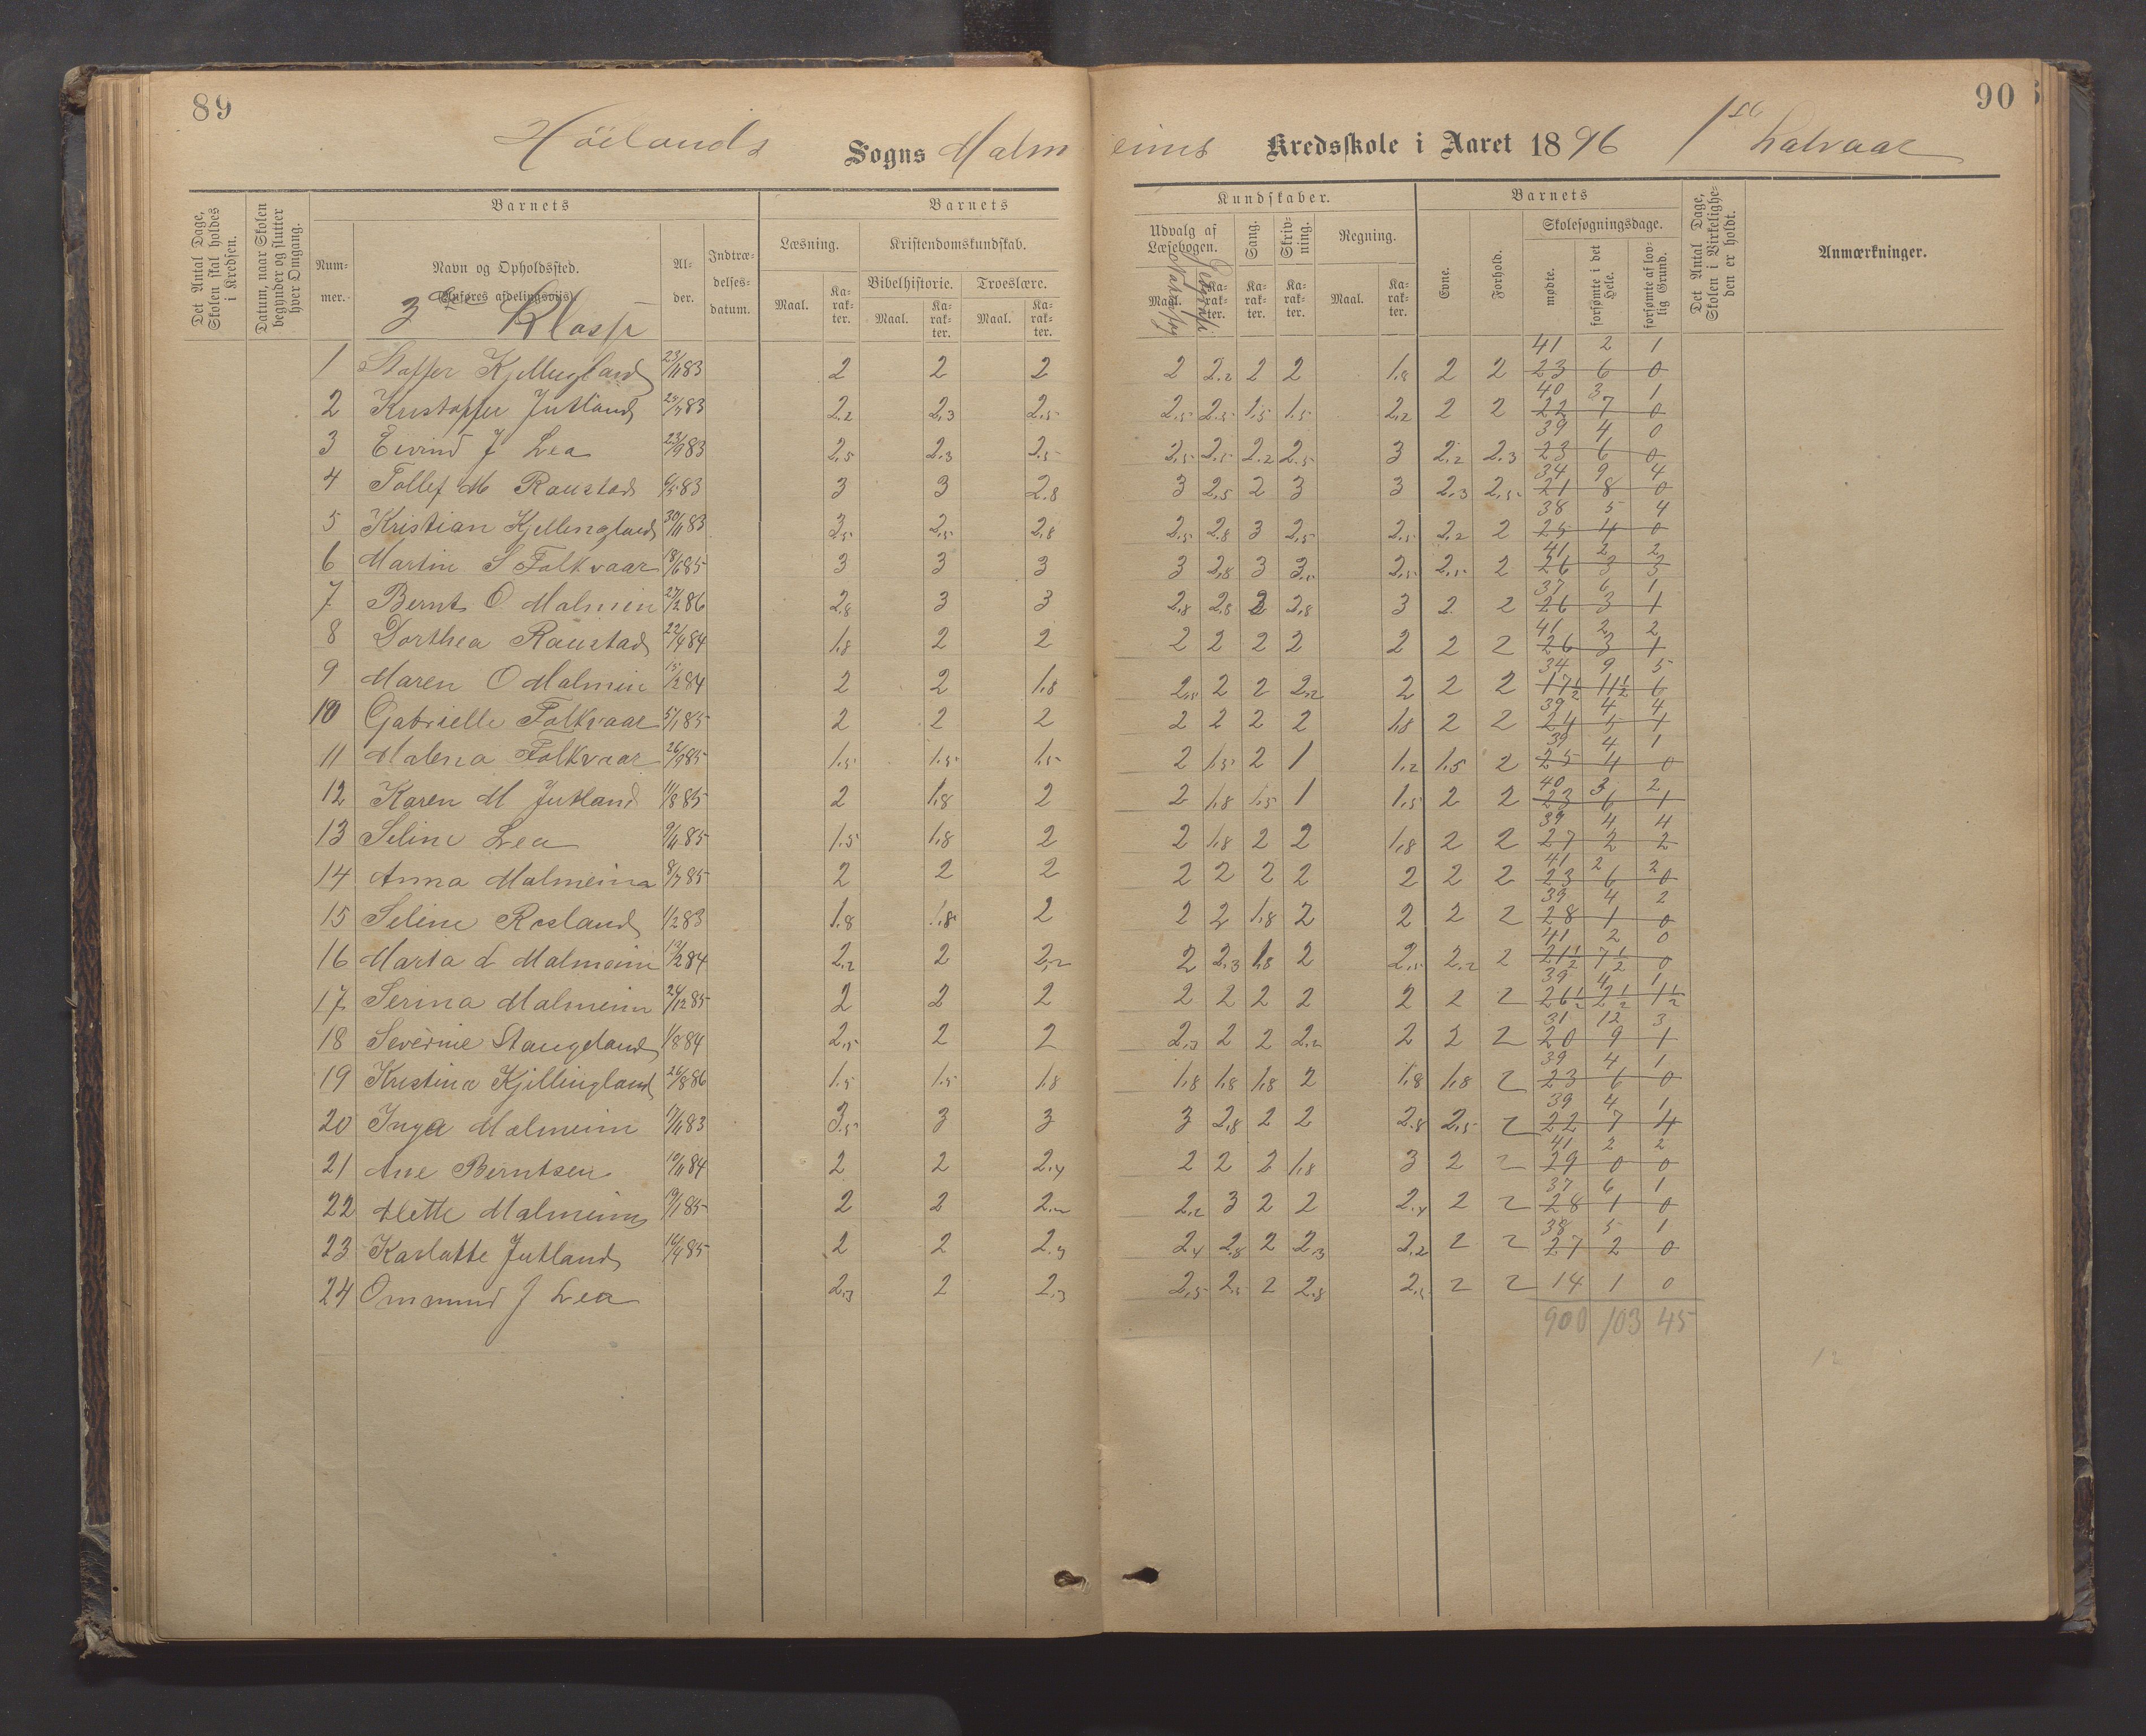 89
90
Höilands Sogns Malmeims Kredsskole i Aaret 1896 1ste halvaar
Det Antal Dage, Skolen skal holdes i Kredsen.
Datum, naar Skolen begynder og slutter hver Omgang.
Barnets
Barnets
Kundskaber.
Barnets
Det Antal Dage, Skolen i Virkeligheden er holdt.
Anmærkninger.
Nummer.
Navn og Opholdssted.
(Anføres afdelingsvis).
3die Klasse
Alder.
Indtrædelsesdatum.
Læsning.
Kristendomskundskab.
Bibelhistorie.
Troeslære.
Udvalg af Læsebogen.
Sang.
Skrivning.
Regning.
Evne.
Forhold.
Skolesøgningsdage.
mødte.
forsømte i det Hele.
forsømte af lovlig Grund.
Maal. Karakter. Maal. Karakter. Maal. Karakter. Maal. Karakter. Karakter. Karakter. Maal. Karakter.
41 2 1
1 Staffer Kjellingland 23/11 83 2 2 2 2 2.2 2 2 1.8 2 2 23 6 0
40 3 1
2 Kristoffer Jutland 23/7 83 2.2 2.3 2.5 2.5 2.5 1.5 1.5 2.2 2 2 22 7 0
39 4 0
3 Eivind J Lea 23/9 83 2.5 2.3 2.5 2.5 2.5 2.2 2.5 3 2.2 2.3 23 6 0
34 9 4
4 Tollef M Raustad 6/5 83 3 3 2.8 3 2.5 2 3 3 2.3 2.5 21 8 0
38 5 4
5 Kristian Kjellingland 30/11 83 3.5 2.5 2.8 2.5 2.8 3 2.5 2.5 2.2 2 25 4 0
41 2 2
6 Martin S Folkvaar 18/6 85 3 3 3 3 2.8 3 3.5 2.5 2.5 2 26 3 3
37 6 1
7 Bernt O Malmin 27/2 86 2.8 3 3 2.8 2.8 3 2.8 3 2 2 26 3 1
41 2 2
8 Dorthea Raustad 22/4 84 1.8 2 2 2 2 2 2 2 2 2 26 3 1
34 9 5
9 Maren O Malmin 15/2 84 2 2 1.8 2.5 2 2 2.2 2 2 2 17½ 11½ 6
39 4 4
10 Gabrielle Folkvaar 5/1 85 2 2 2 2 2 2 2 1.8 2 2 24 5 4
39 4 1
11 Malena Folkvaar 26/9 85 1.5 1.5 1.5 2 1.5 2 1 1.2 1.5 2 25 4 0
40 3 2
12 Karen M Jutland 11/8 85 2 1.8 2 2 1.8 1.5 1 1.5 2 2 23 6 1
39 4 4
13 Seline Lea 9/11 85 1.5 1.8 2 2 1.8 2 2 1.8 2 2 27 2 2
41 2 2
14 Anna Malmeim 8/7 85 2 2 2 2 2 2 2 2 2 2 23 6 0
39 4 2
15 Seline Rosland 1/2 83 1.8 1.8 2 2 2 1.8 2 2 2 2 28 1 0
41 2 0
16 Marta L Malmeim 12/2 84 2.2 2 2.2 2 2.3 1.8 2 2.5 2.2 2 21½ 7½ 0
39 4 1
17 Serina Malmeim 24/12 85 2 2 2 2 2 2 2 2 2 2 26½ 2½ 1½
31 12 3
18 Severine Stangeland 1/8 84 2.5 2 2 2.3 2 2 2.2 2 2 2 20 9 1
39 4 1
19 Kristina Kjellingland 26/8 86 1.5 1.5 1.8 1.8 1.8 1.8 2 1.8 1.8 2 23 6 0
39 4 1
20 Inga Malmeim 17/11 83 3.5 3 3 3 2.8 2 2 2.8 2.5 2 22 7 4
41 2 2
21 Ane Berntsen 10/11 84 2 2 2.4 2 2 2 1.8 3 2 2 29 0 0
37 6 1
22 Mette Malmeim 19/1 85 2 2 2.2 2.2 3 2 2 2.4 2 2 28 1 0
38 5 1
23 Karlatte Jutland 16/4 85 2 2 2.3 2.4 2.8 2 2.3 2.2 2 2 27 2 0
24 Ommund J Lea 2.3 2 2.3 2.5 2.5 2 2.8 2.5 2 2 14 1 0
900 103 45